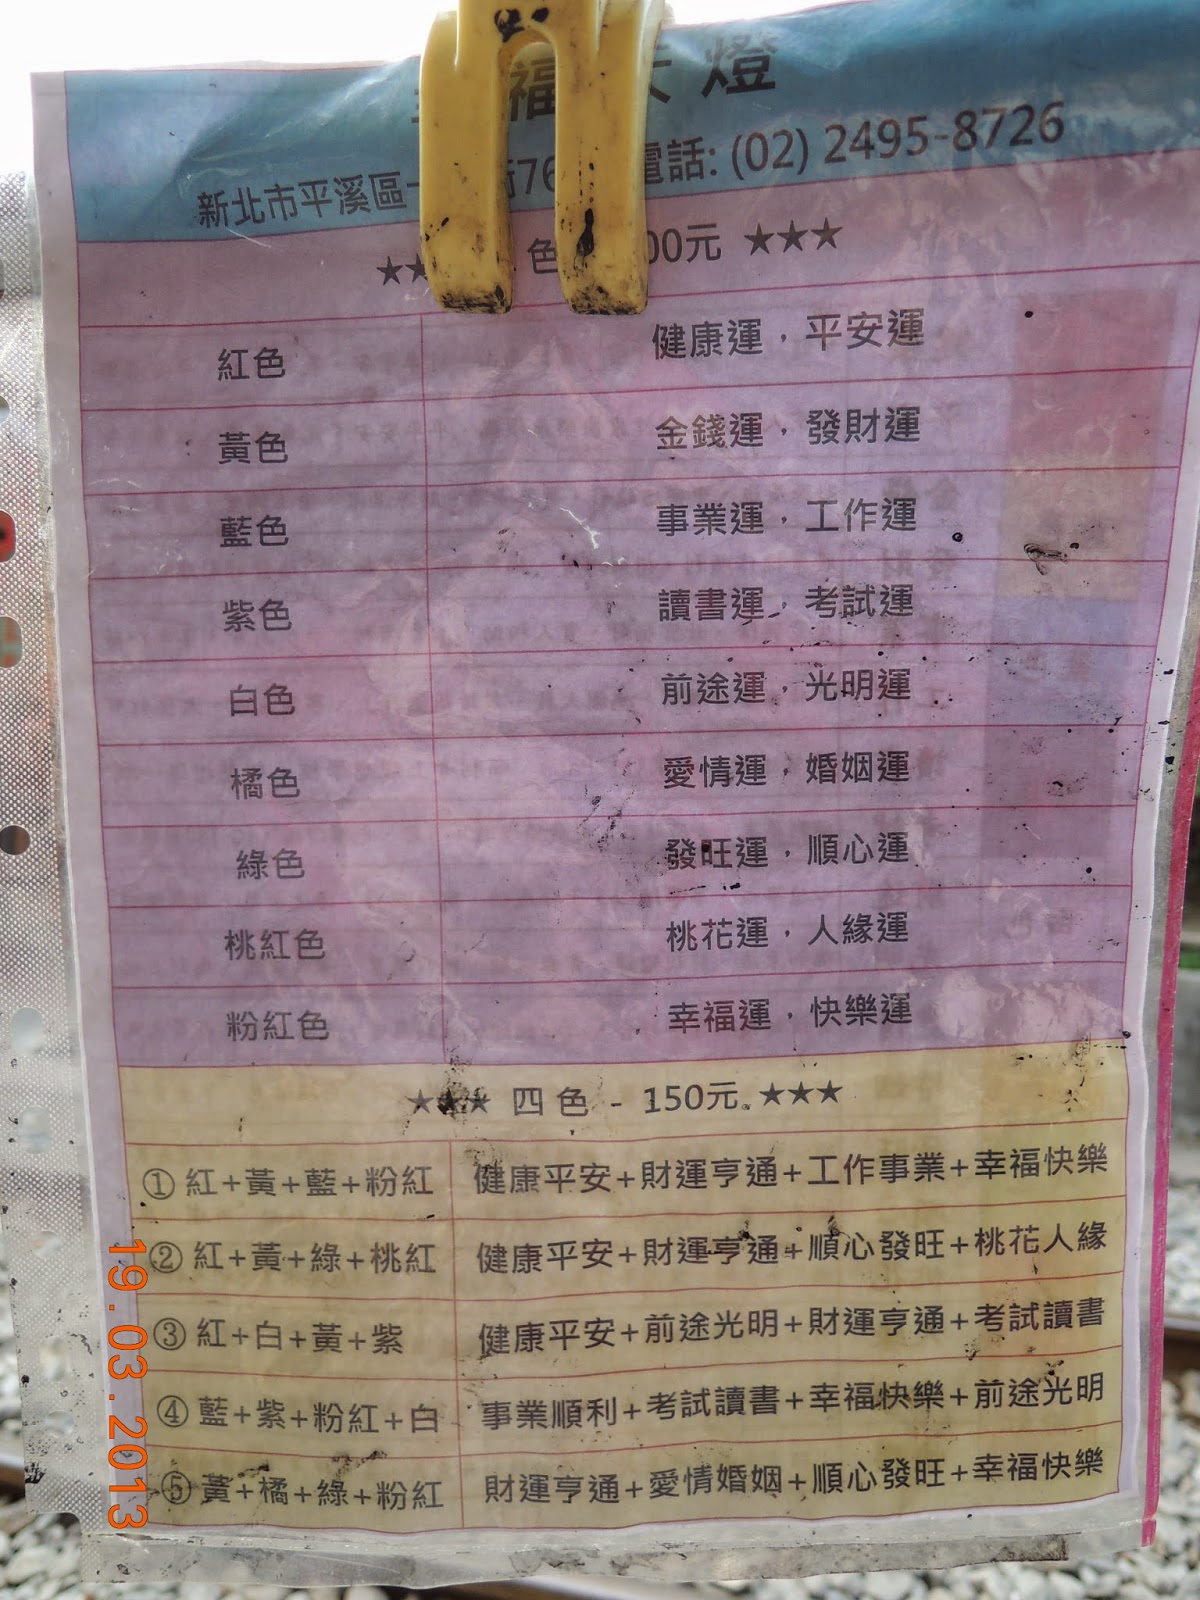 福 天燈
新北市平溪區 街76 電話: (02) 2495-8726
★★ 色 00元 ★★★
紅色 健康運，平安運
黃色 金錢運，發財運
藍色 事業運，工作運
紫色 讀書運，考試運
白色 前途運，光明運
橘色 愛情運，婚姻運
綠色 發旺運，順心運
桃紅色 桃花運，人緣運
粉紅色 幸福運，快樂運
★★★ 四色 - 150元 ★★★
① 紅+黃+藍+粉紅 健康平安+財運亨通+工作事業+幸福快樂
② 紅+黃+綠+桃紅 健康平安+財運亨通+順心發旺+桃花人緣
③ 紅+白+黃+紫 健康平安+前途光明+財運亨通+考試讀書
④ 藍+紫+粉紅+白 事業順利+考試讀書+幸福快樂+前途光明
⑤ 黃+橘+綠+粉紅 財運亨通+愛情婚姻+順心發旺+幸福快樂
19.03.2013